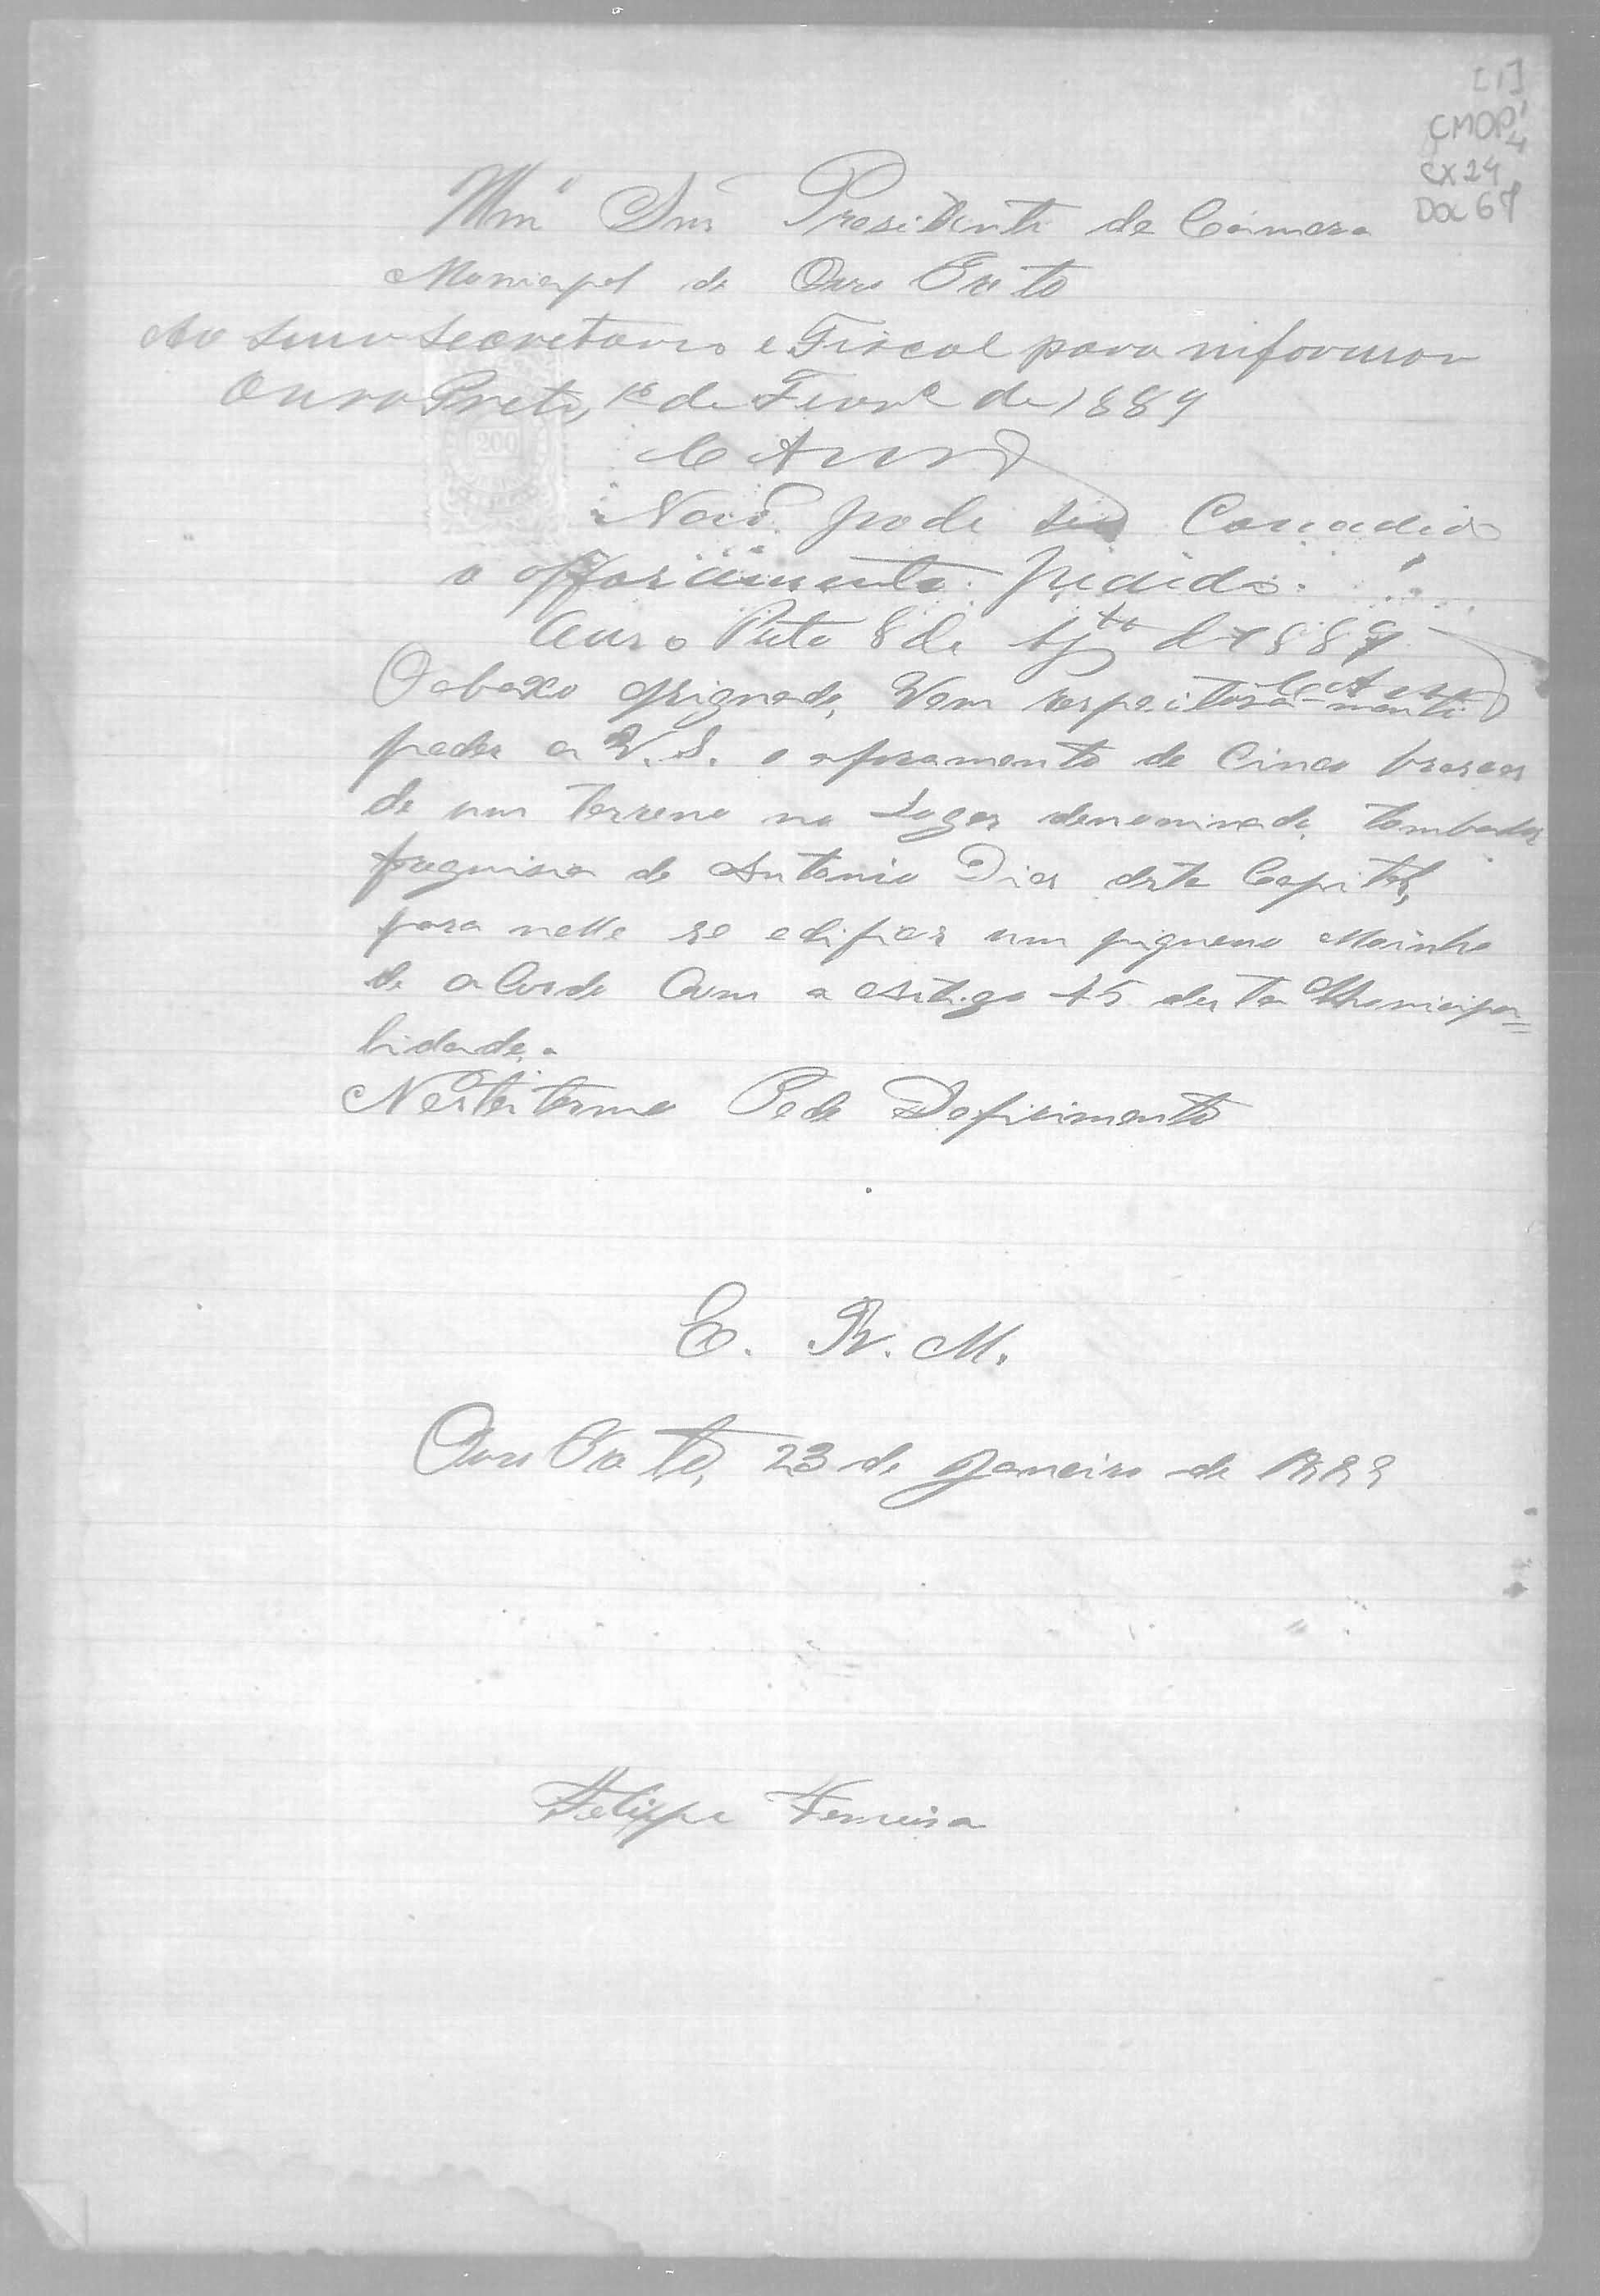 [1]
CMOP
CX 24
Doc 67
Illmº Snr Presidente da Camara
Monicipal de Ouro Preto
Ao Senr Secretario e Fiscal para informar
Ouro Preto, 1º de Fevrº de 1889
200
Não pode ser Concedido
o afforamento pedido.
Ouro Preto 8 de de 1889
O abaxo asignado, Vem respeitosa-mente
peder a V. S. o aforamento de Cinco braças
de um terreno no Logar denominado Tombador
freguisia de Antonio Dias desta Capital,
para nelle se edificar um piqueno Moinho
de a Cordo Com o Artigo 45 desta Monicipa=
lidade.
Nestes termo Pede Deferimento
E. R. M.
Ouro Preto, 23 de Janeiro de 1889
Felippe Ferreira